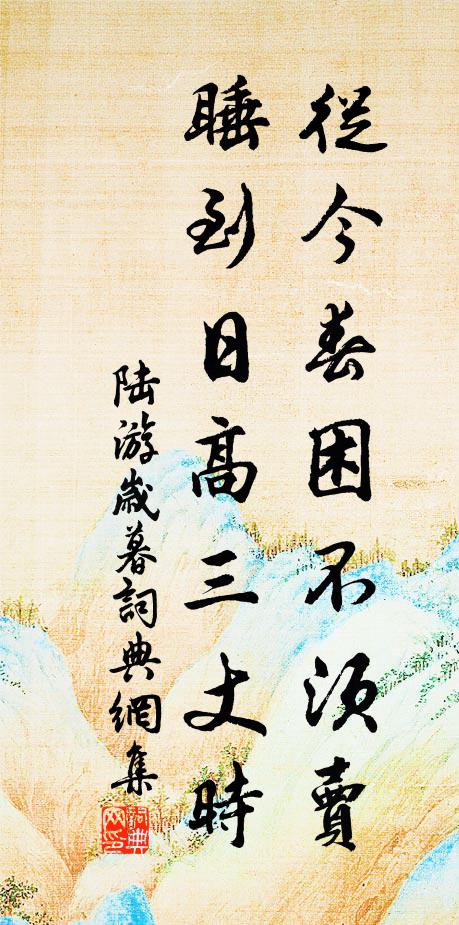 從今春困不須賣
睡到日高三丈時
陸游歲暮詞典網集
詞典網印